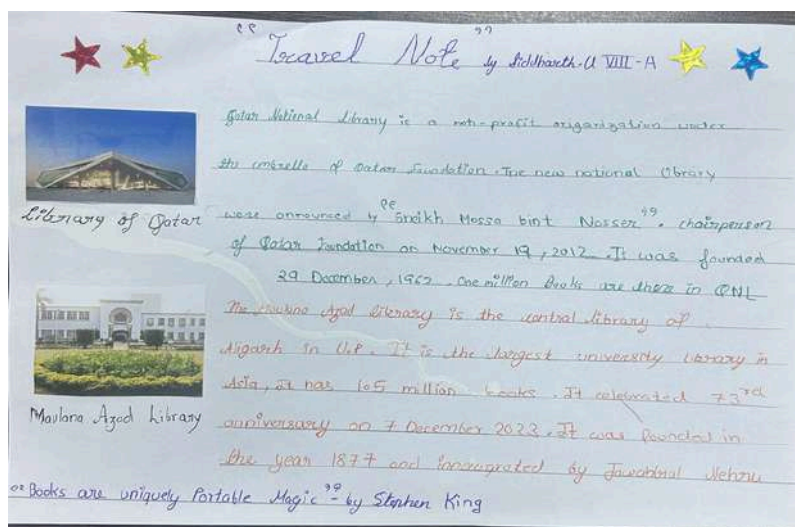 "Travel Note" by Siddharth.U VIII-A
Qatar National Library is a non-profit origanization under
the umbrella of Qatar Foundation. The new national library
Library of Qatar
were announced by "Sheikh Mossa bint Nasser". chairperson
of Qatar Foundation on November 19, 2012. It was founded
29 December, 1962. One million Books are there in QNL
The Maulana Azad library is the central library of
Aligarh in U.P. It is the largest university library in
Asia, it has 1.5 million books. It celebrated 73rd
Maulana Azad Library
anniversary on 7 December 2023. It was founded in
the year 1877 and innaugrated by Jawahral Nehru
"Books are uniquely Portable Magic" - by Stephen King